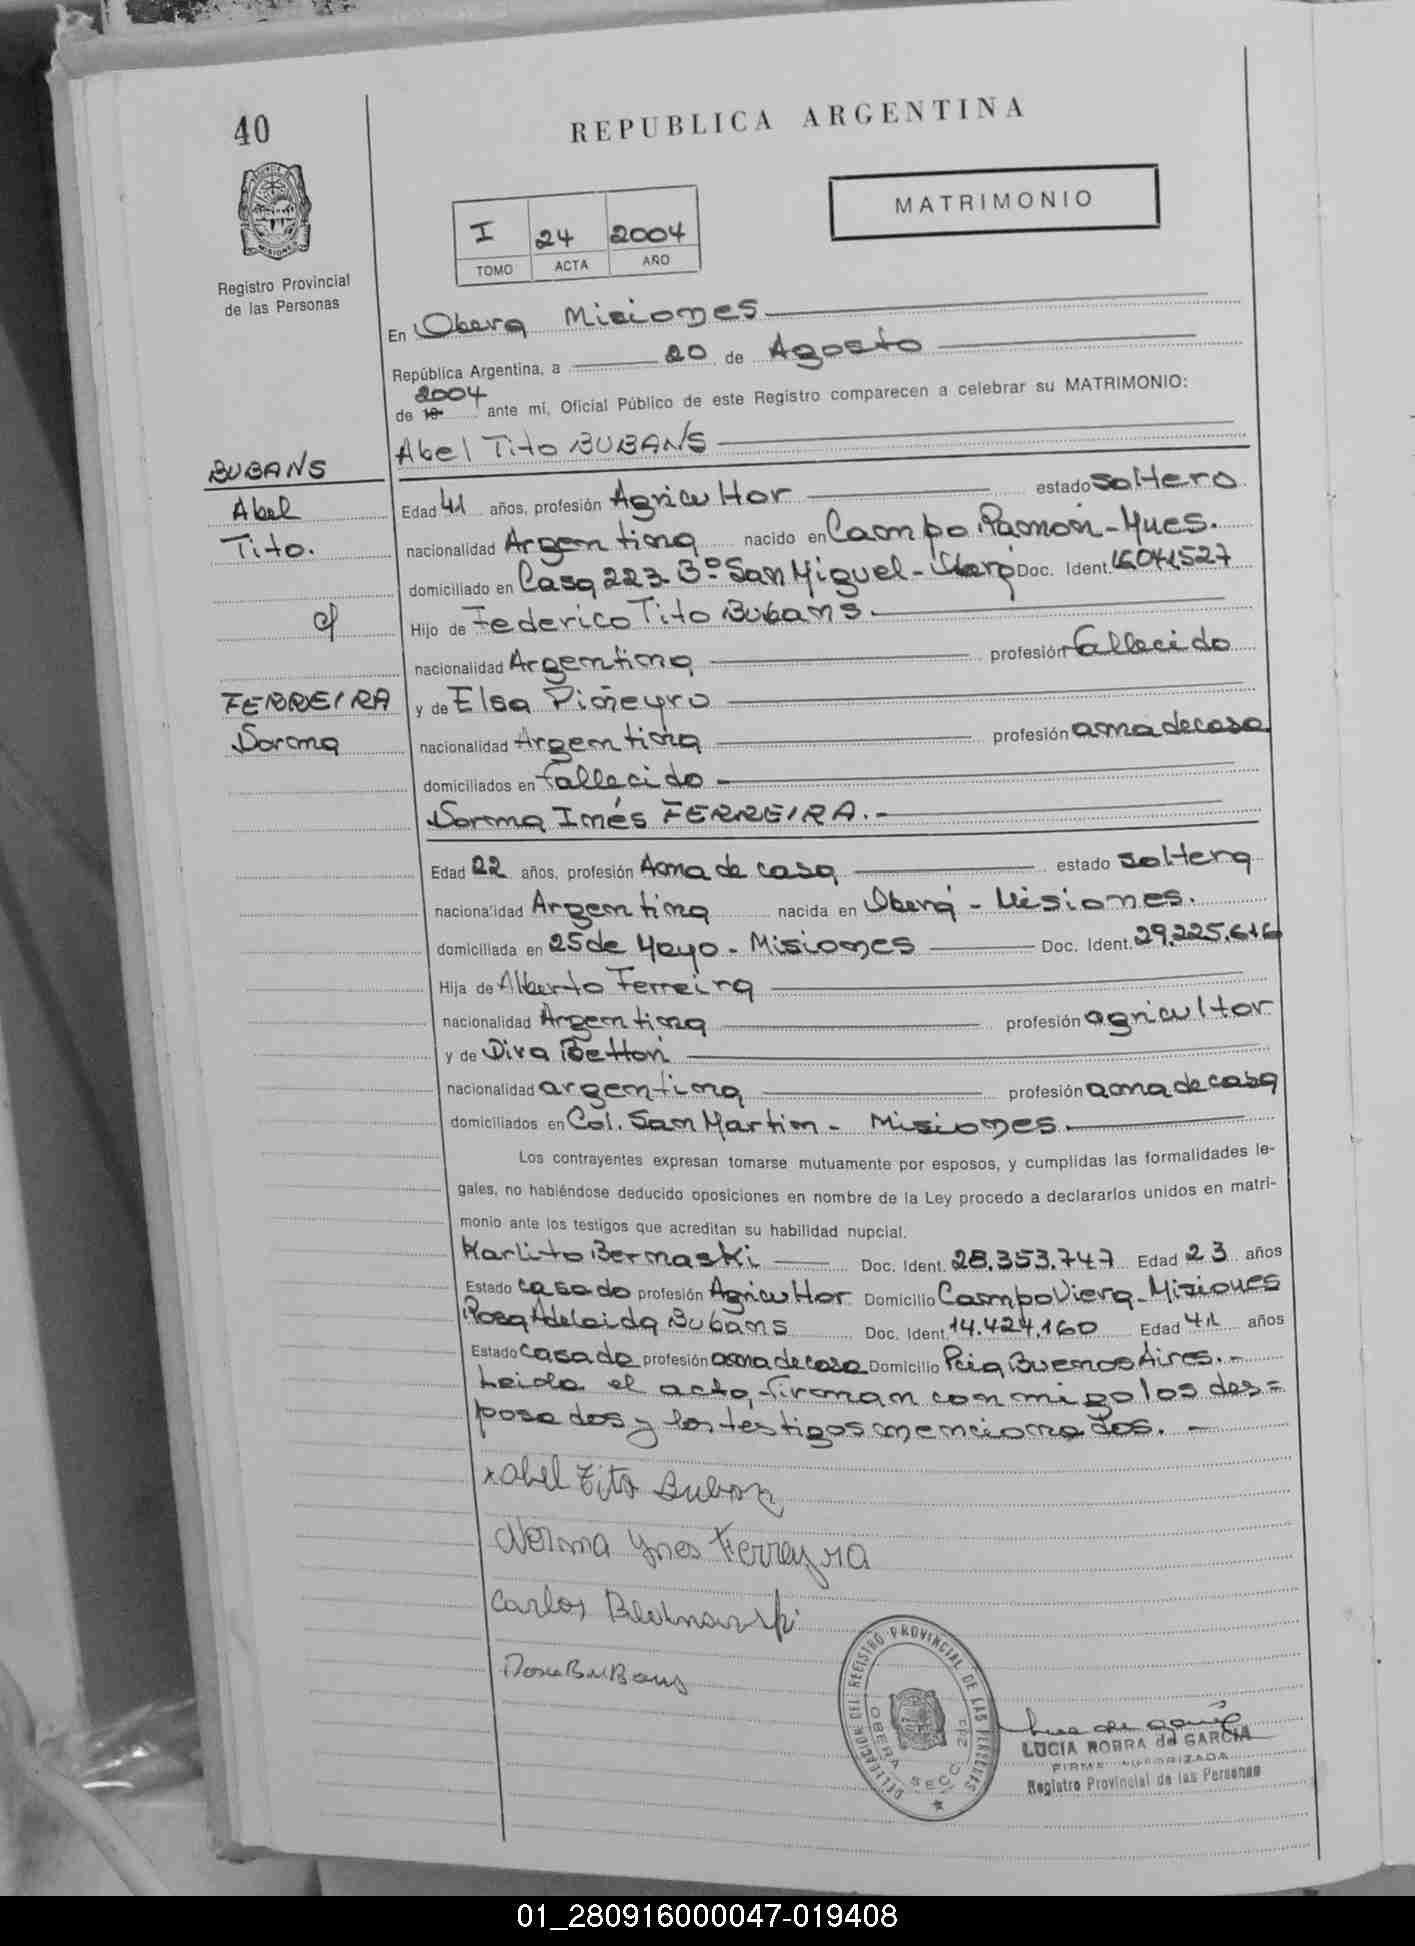 40
REPUBLICA ARGENTINA
MATRIMONIO
I 24 2004
TOMO ACTA AÑO
Registro Provincial
de las Personas
En Obera Misiones
República Argentina, a 20 de Agosto
2004
de 19 ante mí, Oficial Público de este Registro comparecen a celebrar su MATRIMONIO:
Abel Tito BUBANS
BUBANS
Abel
Tito.
c/
FERREIRA
Norma
Edad 41 años, profesión Agricultor estado soltero
nacionalidad Argentina nacido en Campo Ramón-Mnes.
domiciliado en Casa 223 Bº San Miguel - Oberá Doc. Ident. 16.041.527
Hijo de Federico Tito Bubans.
nacionalidad Argentina profesión fallecido
y de Elsa Piñeyro
nacionalidad Argentina profesión ama de casa
domiciliados en fallecido
Norma Inés FERREIRA.-
Edad 22 años, profesión Ama de casa estado soltera
nacionalidad Argentina nacida en Oberá - Misiones.
domiciliada en 25 de Mayo - Misiones Doc. Ident. 29.225.616
Hija de Alberto Ferreira
nacionalidad Argentina profesión agricultor
y de Diva Betton
nacionalidad argentina profesión ama de casa
domiciliados en Col. San Martin - Misiones.
Los contrayentes expresan tomarse mutuamente por esposos, y cumplidas las formalidades le-
gales, no habiéndose deducido oposiciones en nombre de la Ley procedo a declararlos unidos en matri-
monio ante los testigos que acreditan su habilidad nupcial.
Karlito Bernaski Doc. Ident. 28.353.747 Edad 23 años
Estado casado profesión Agricultor Domicilio Campo Viera - Misiones
Rosa Adelaida Bubans Doc. Ident. 14.424.160 Edad 41 años
Estado casada profesión ama de casa Domicilio Pcia Buenos Aires.-
Leida el acta, firman conmigo los des=
posados y los testigos mencionados.-
x abel Tito Bubans
Norma Ynes Ferreyra
Carlos
Rosa BuBans
DELEGACION DEL REGISTRO PROVINCIAL DE LAS PERSONAS
OBERA SECC. 2da
LUCIA ROBRA de GARCIA
FIRMA AUTORIZADA
Registro Provincial de las Personas
01_280916000047-019408